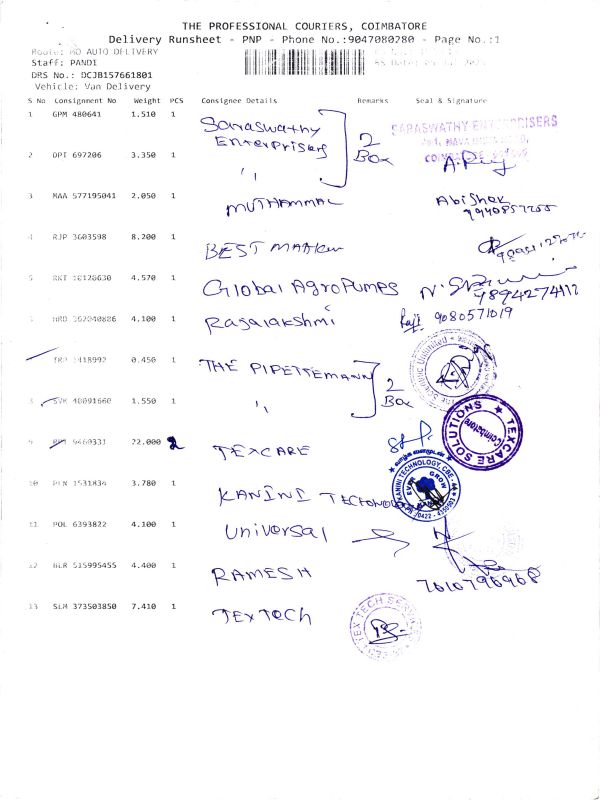 THE PROFESSIONAL COURIERS, COIMBATORE
Delivery Runsheet - PNP - Phone No.:9047080280 - Page No.:1
Route: HO AUTO DELIVERY
Staff: PANDI
DRS No.: DCJB157661801
Vehicle: Van Delivery
S No Consignment No Weight PCS Consignee Details Remarks Seal & Signature
1 GPM 480641 1.510 1 Saraswathy Enterprisers 2 Box SARASWATHY ENTERPRISERS
2 OPT 697206 3.350 1 ,, COIMBATORE
3 MAA 577195041 2.050 1 MUTHAMMAL Abishek
4 RJP 3603598 8.200 1 BEST
5 RKT 4.570 1 Global AgroPumps 9894274112
4.100 1 Rajalakshmi Raji 9080571019
0.450 1 THE PIPETTEMANN 2 Box The Scientific Unlimited
8 SVK 40091660 1.550 1 ,,
9 9460331 22.000 2 TEXCARE TEXCARE SOLUTIONS Coimbatore
10 PLN 1531834 3.780 1 KANINI TECHNOLOGY KANINI TECHNOLOGY, CBE EVER GROW
11 POL 6393822 4.100 1 Universal
12 BLR 515995455 4.400 1 RAMESH 7610796968
13 SLM 373503850 7.410 1 TexTech TEX TECH